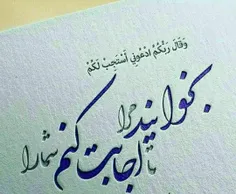 وَقَالَ رَبُّكُمُ ادْعُونِي أَسْتَجِبْ لَكُمْ
بخوانید مرا
تا اجابت کنم شما را